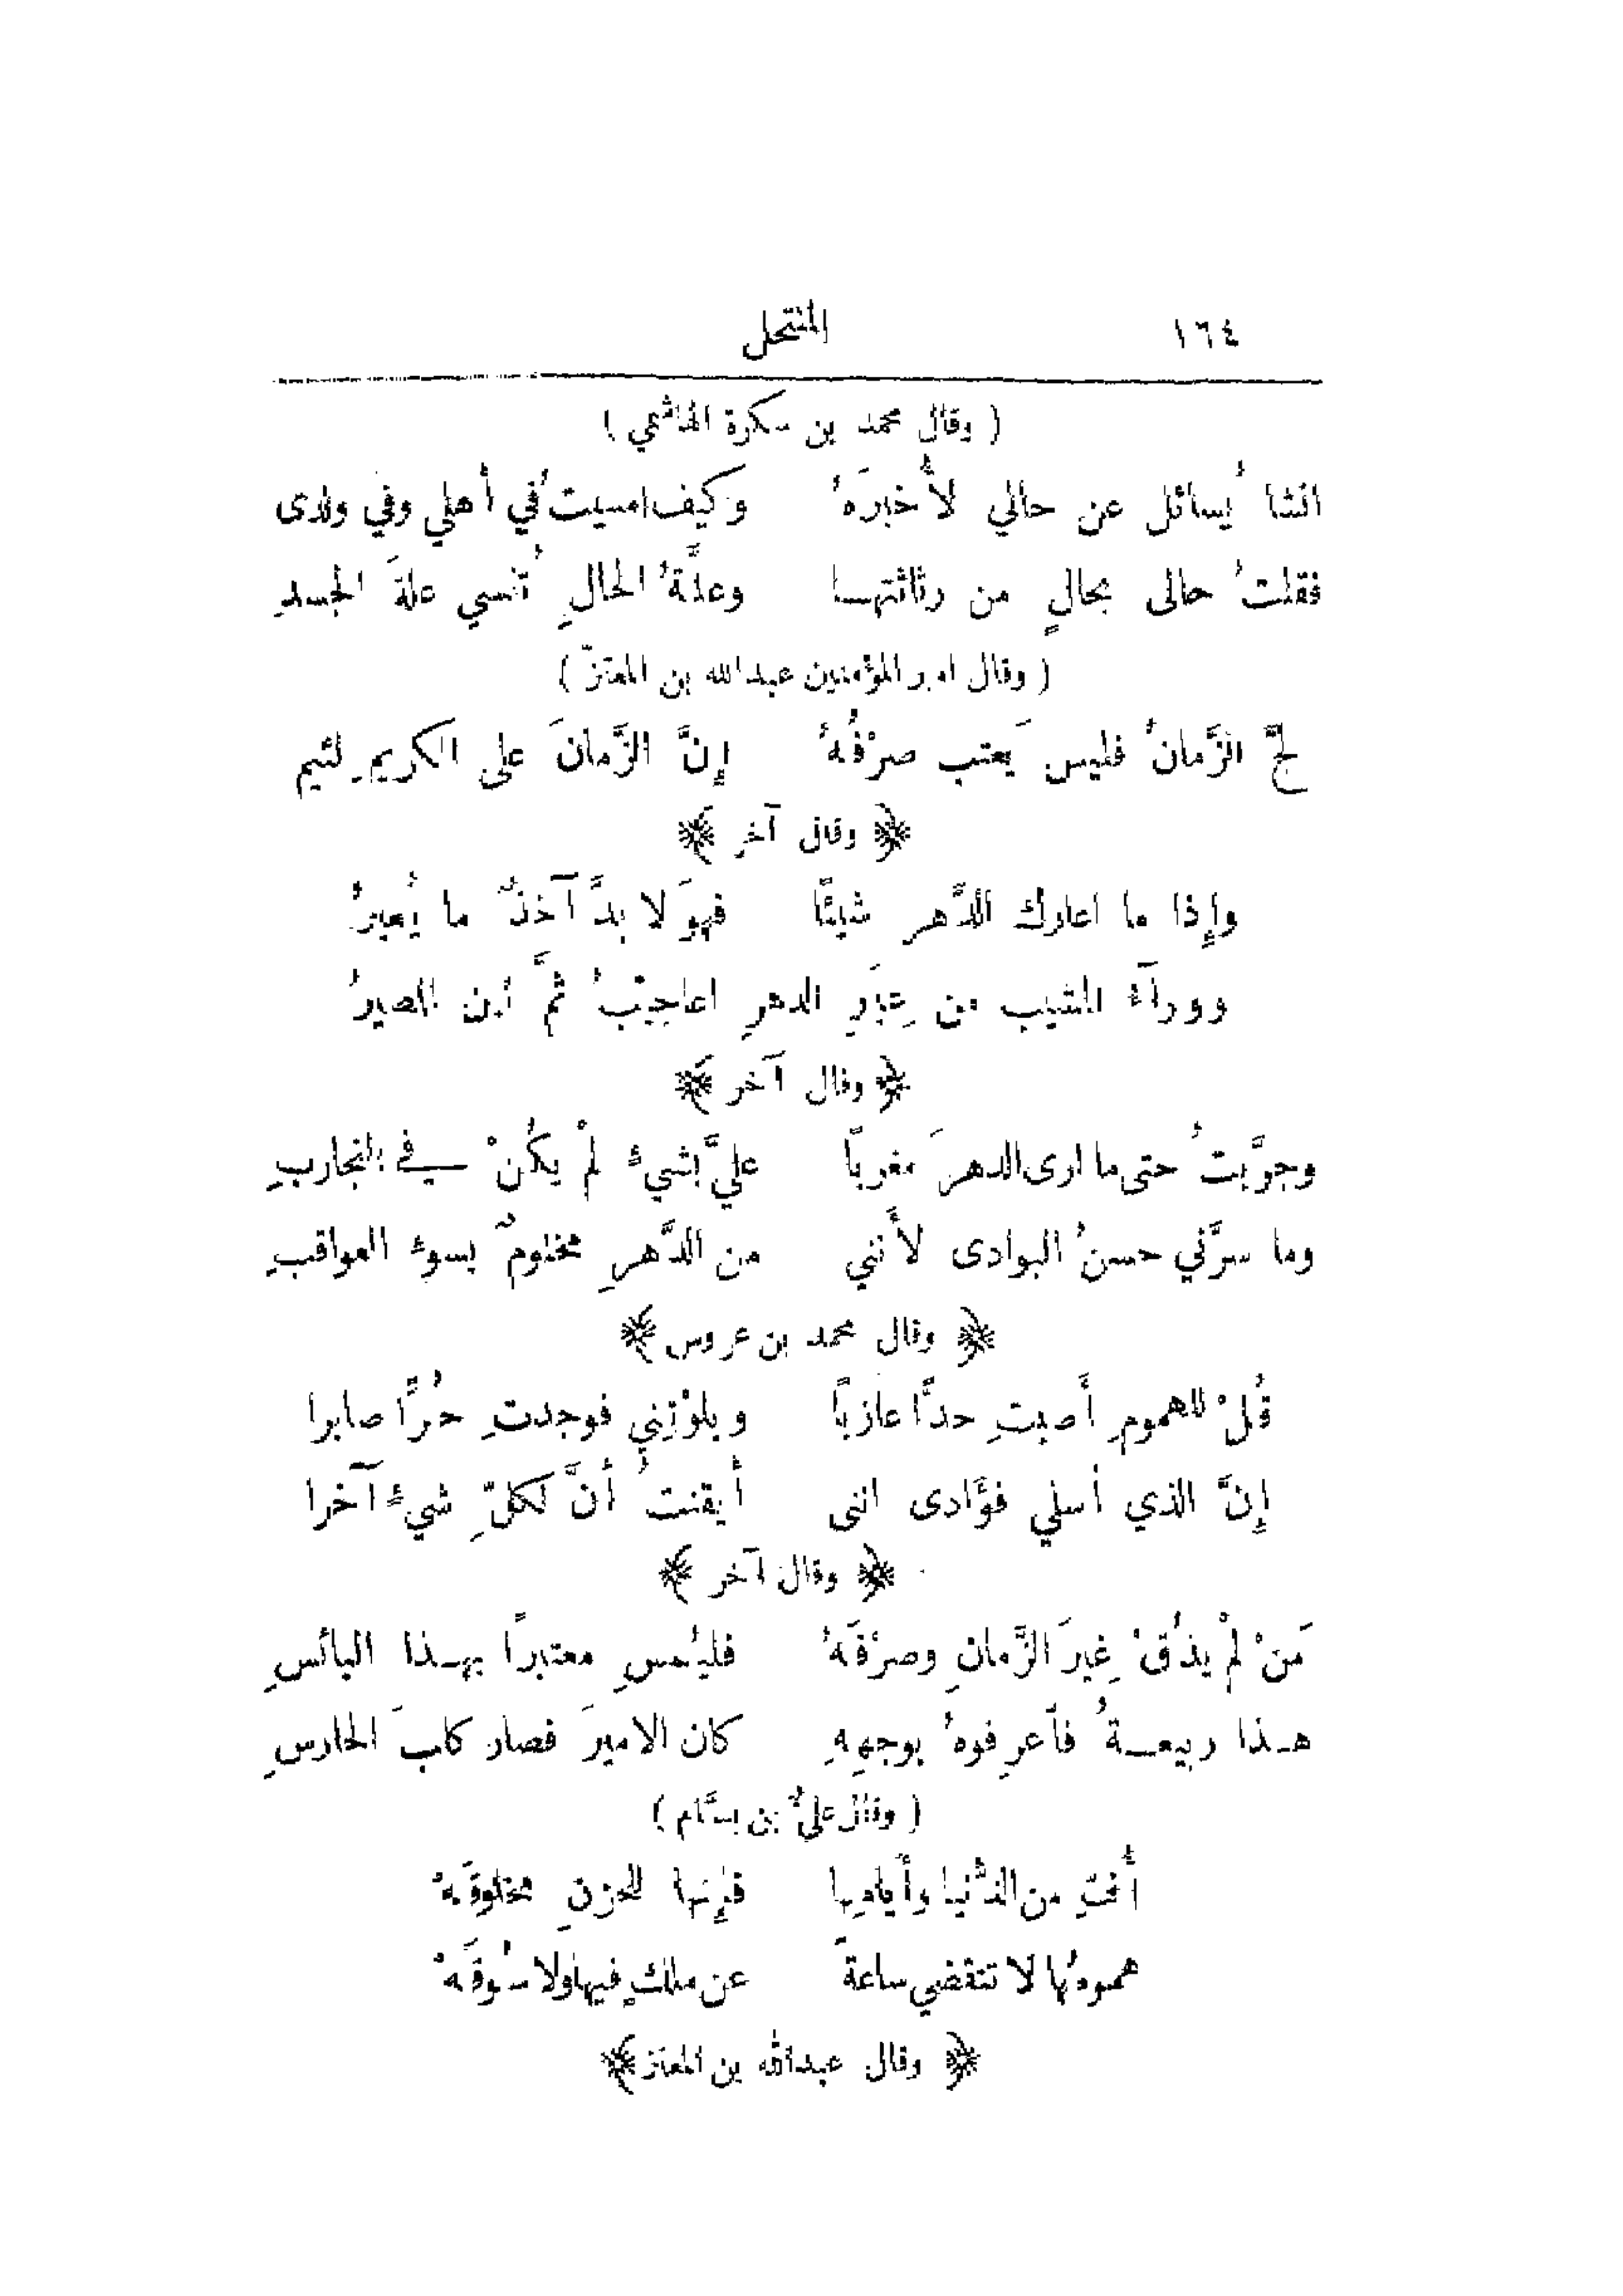 ١٦٤ المنتحل
( وقال محمد بن سكرة الهاشمي )
انشا يُسائل عن حالي لأُخبرَهُ وكيف امسيتُ في أهلي وفي ولدى
فقلتُ حالى بحالٍ من رثاثتهـا وعلَّةُ الحالِ تُنسي علةَ الجسدِ
( وقال امير المؤمنين عبدالله بن المعتزّ )
لجَّ الزَّمانُ فليس يَعتب صرْفُهُ إِنَّ الزَّمانَ على الكريمِ لئيم
﴿ وقال آخر ﴾
وإِذا ما اعارك الدَّهر شيئًا فهوَ لا بدَّ آخذٌ ما يُعيرُ
وورآءَ المشيب من عِبَرِ الدهرِ اعاجيْبُ ثمَّ أين المصيرُ
﴿ وقال آخر ﴾
وجرَّبتُ حتى ما ارى الدهرَ مغربًا عليَّ بشيءٍ لمْ يكُنْ في التجاربِ
وما سرَّني حسنُ البوادى لأَنني من الدَّهرِ مختومٌ بسوءِ العواقبِ
﴿ وقال محمد بن عروس ﴾
قُلْ للهمومِ أَصبتِ حدًّا عازبًا وبلوْتِني فوجدتِ حُرًّا صابرا
إِنَّ الذي أسلي فؤَادى اننى أَيقنتُ أَنَّ لكلِّ شيءٍ آخرا
﴿ وقال آخر ﴾
مَنْ لمْ يذُقْ غِيرَ الزَّمانِ وصرْفَهُ فليُمسِ معتبرًا بهـذا البائسِ
هـذا ربيعـةُ فآعرِفوهُ بوجهِهِ كان الاميرَ فصار كلبَ الحارسِ
( وقال عليُّ بن بسَّام )
أُفٍّ من الدُّنيا وأَيامِها فإِنها للحزنِ مخلوقَهْ
همومُها لا تنقضي ساعةً عن ملكٍ فيها ولا سُوقَهْ
﴿ وقال عبدالله بن المعتز ﴾